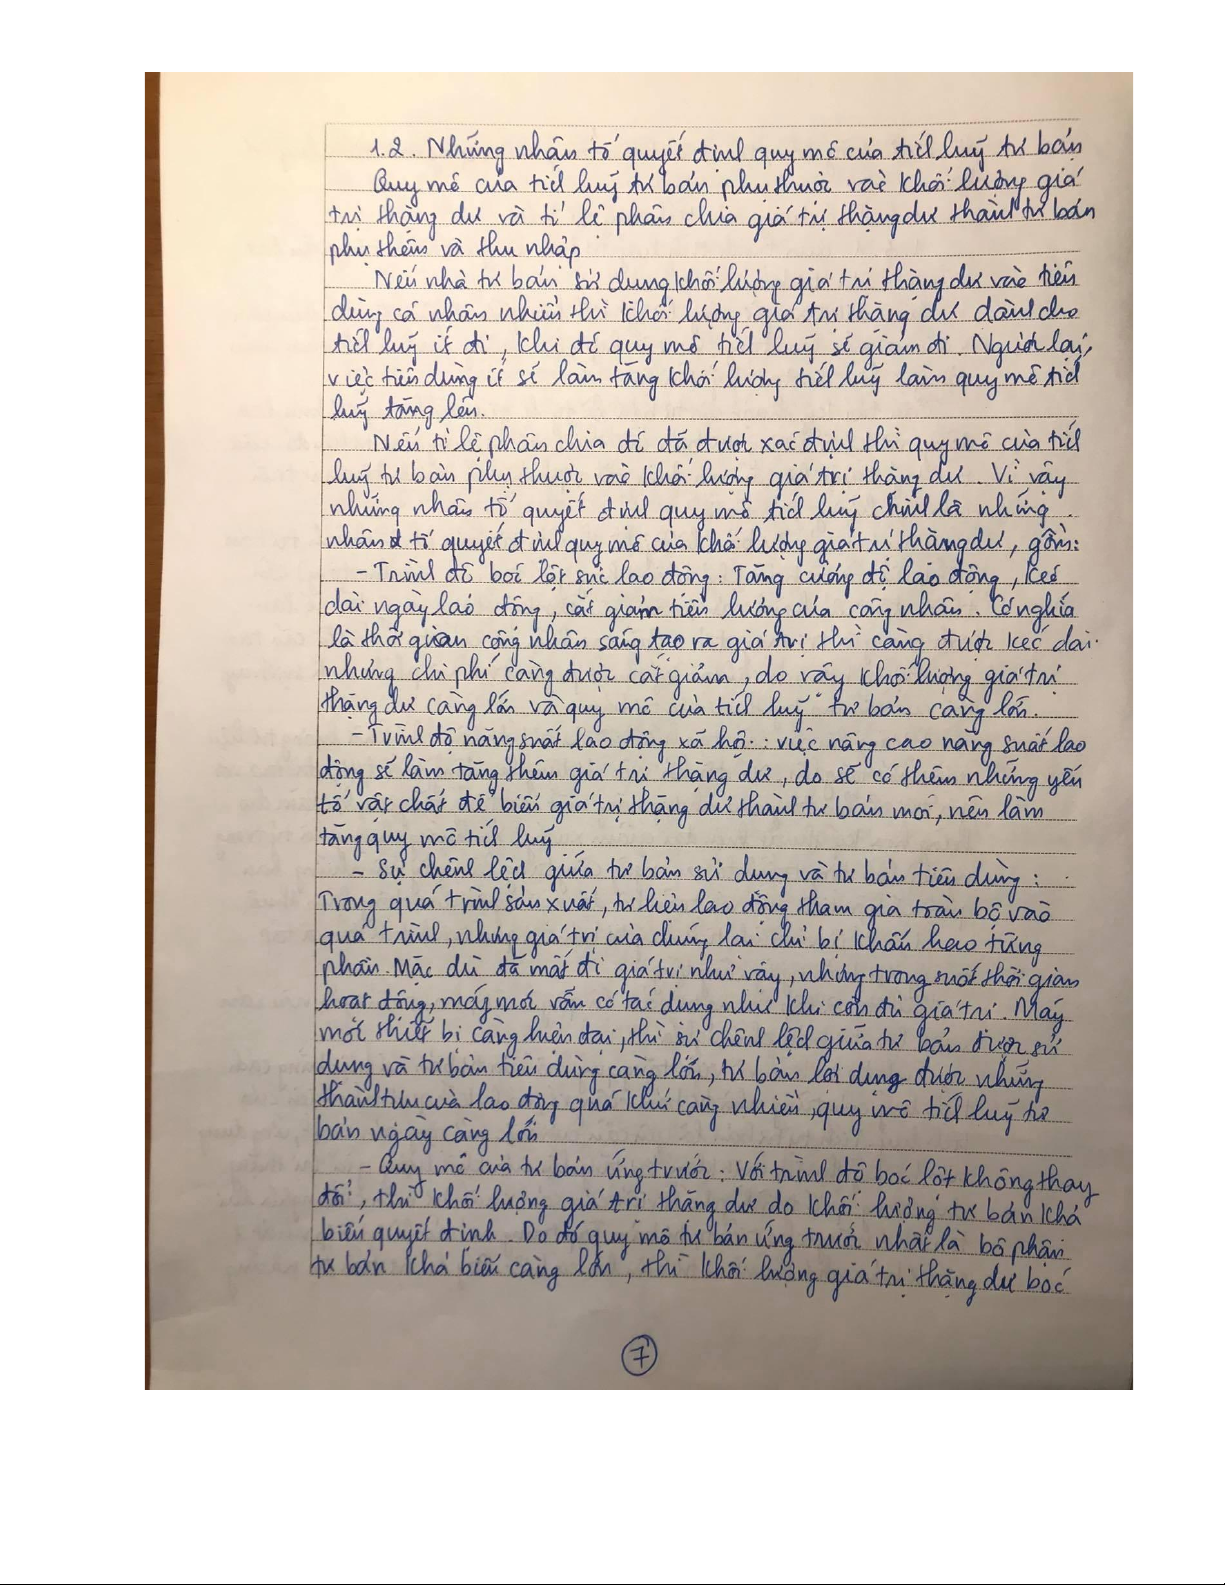 1.2. Những nhân tố quyết định quy mô của tích luỹ tư bản
Quy mô của tích luỹ tư bản phụ thuộc vào khối lượng giá
trị thặng dư và tỉ lệ phân chia giá trị thặng dư thành tư bản
phụ thêm và thu nhập
Nếu nhà tư bản sử dụng khối lượng giá trị thặng dư vào tiêu
dùng cá nhân nhiều thì khối lượng giá trị thặng dư dành cho
tích luỹ ít đi, khi đó quy mô tích luỹ sẽ giảm đi. Ngược lại,
việc tiêu dùng ít sẽ làm tăng khối lượng tích luỹ làm quy mô tích
luỹ tăng lên.
Nếu tỉ lệ phân chia đó đã được xác định thì quy mô của tích
luỹ tư bản phụ thuộc vào khối lượng giá trị thặng dư. Vì vậy
những nhân tố quyết định quy mô tích luỹ chính là những
nhân tố quyết định quy mô của khối lượng giá trị thặng dư, gồm:
- Trình độ bóc lột sức lao động: Tăng cường độ lao động, kéo
dài ngày lao động, cắt giảm tiền lương của công nhân. Có nghĩa
là thời gian công nhân sáng tạo ra giá trị thì càng được kéo dài
nhưng chi phí càng được cắt giảm, do vậy khối lượng giá trị
thặng dư càng lớn và quy mô của tích luỹ tư bản càng lớn.
- Trình độ năng suất lao động xã hội: việc nâng cao năng suất lao
động sẽ làm tăng thêm giá trị thặng dư, do sẽ có thêm những yếu
tố vật chất để biến giá trị thặng dư thành tư bản mới, nên làm
tăng quy mô tích luỹ
- Sự chênh lệch giữa tư bản sử dụng và tư bản tiêu dùng:
Trong quá trình sản xuất, tư liệu lao động tham gia toàn bộ vào
quá trình, nhưng giá trị của chúng lại chỉ bị khấu hao từng
phần. Mặc dù đã mất đi giá trị như vậy, nhưng trong suốt thời gian
hoạt động, máy móc vẫn có tác dụng như khi còn đủ giá trị. Máy
móc thiết bị càng hiện đại, thì sự chênh lệch giữa tư bản được sử
dụng và tư bản tiêu dùng càng lớn, tư bản lợi dụng được những
thành tựu của lao động quá khứ càng nhiều, quy mô tích luỹ tư
bản ngày càng lớn
- Quy mô của tư bản ứng trước: Với trình độ bóc lột không thay
đổi, thì khối lượng giá trị thặng dư do khối lượng tư bản khả
biến quyết định. Do đó quy mô tư bản ứng trước nhất là bộ phận
tư bản khả biến càng lớn, thì khối lượng giá trị thặng dư bóc
7